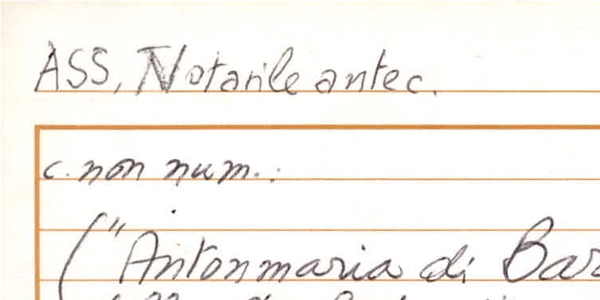 ASS, Notarile antec.
c. non num.:
("Antonmaria di